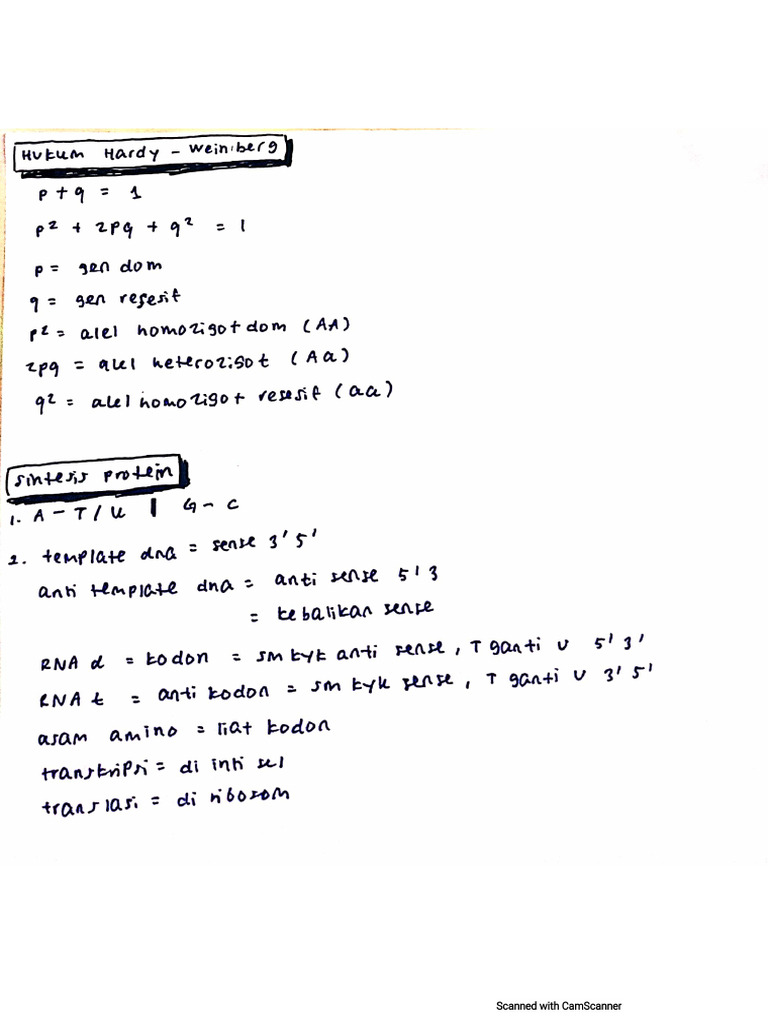 Hukum Hardy - Weinberg
p + q = 1
p² + 2pq + q² = 1
p = gen dom
q = gen resesif
p² = alel homozigot dom (AA)
2pq = alel heterozigot (Aa)
q² = alel homozigot resesif (aa)
Sintesis protein
1. A - T/U | G - C
2. template dna = sense 3'5'
anti template dna = anti sense 5'3
= kebalikan sense
RNA d = kodon = sm kyk anti sense, T ganti U 5'3'
RNA t = anti kodon = sm kyk sense, T ganti U 3'5'
asam amino = liat kodon
transkripsi = di inti sel
translasi = di ribosom
Scanned with CamScanner